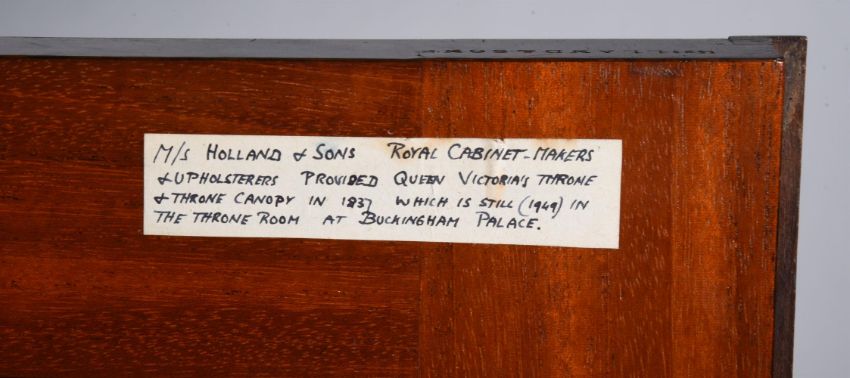 M/S HOLLAND & SONS ROYAL CABINET-MAKERS
& UPHOLSTERERS PROVIDED QUEEN VICTORIA'S THRONE
& THRONE CANOPY IN 1837 WHICH IS STILL (1949) IN
THE THRONE ROOM AT BUCKINGHAM PALACE.